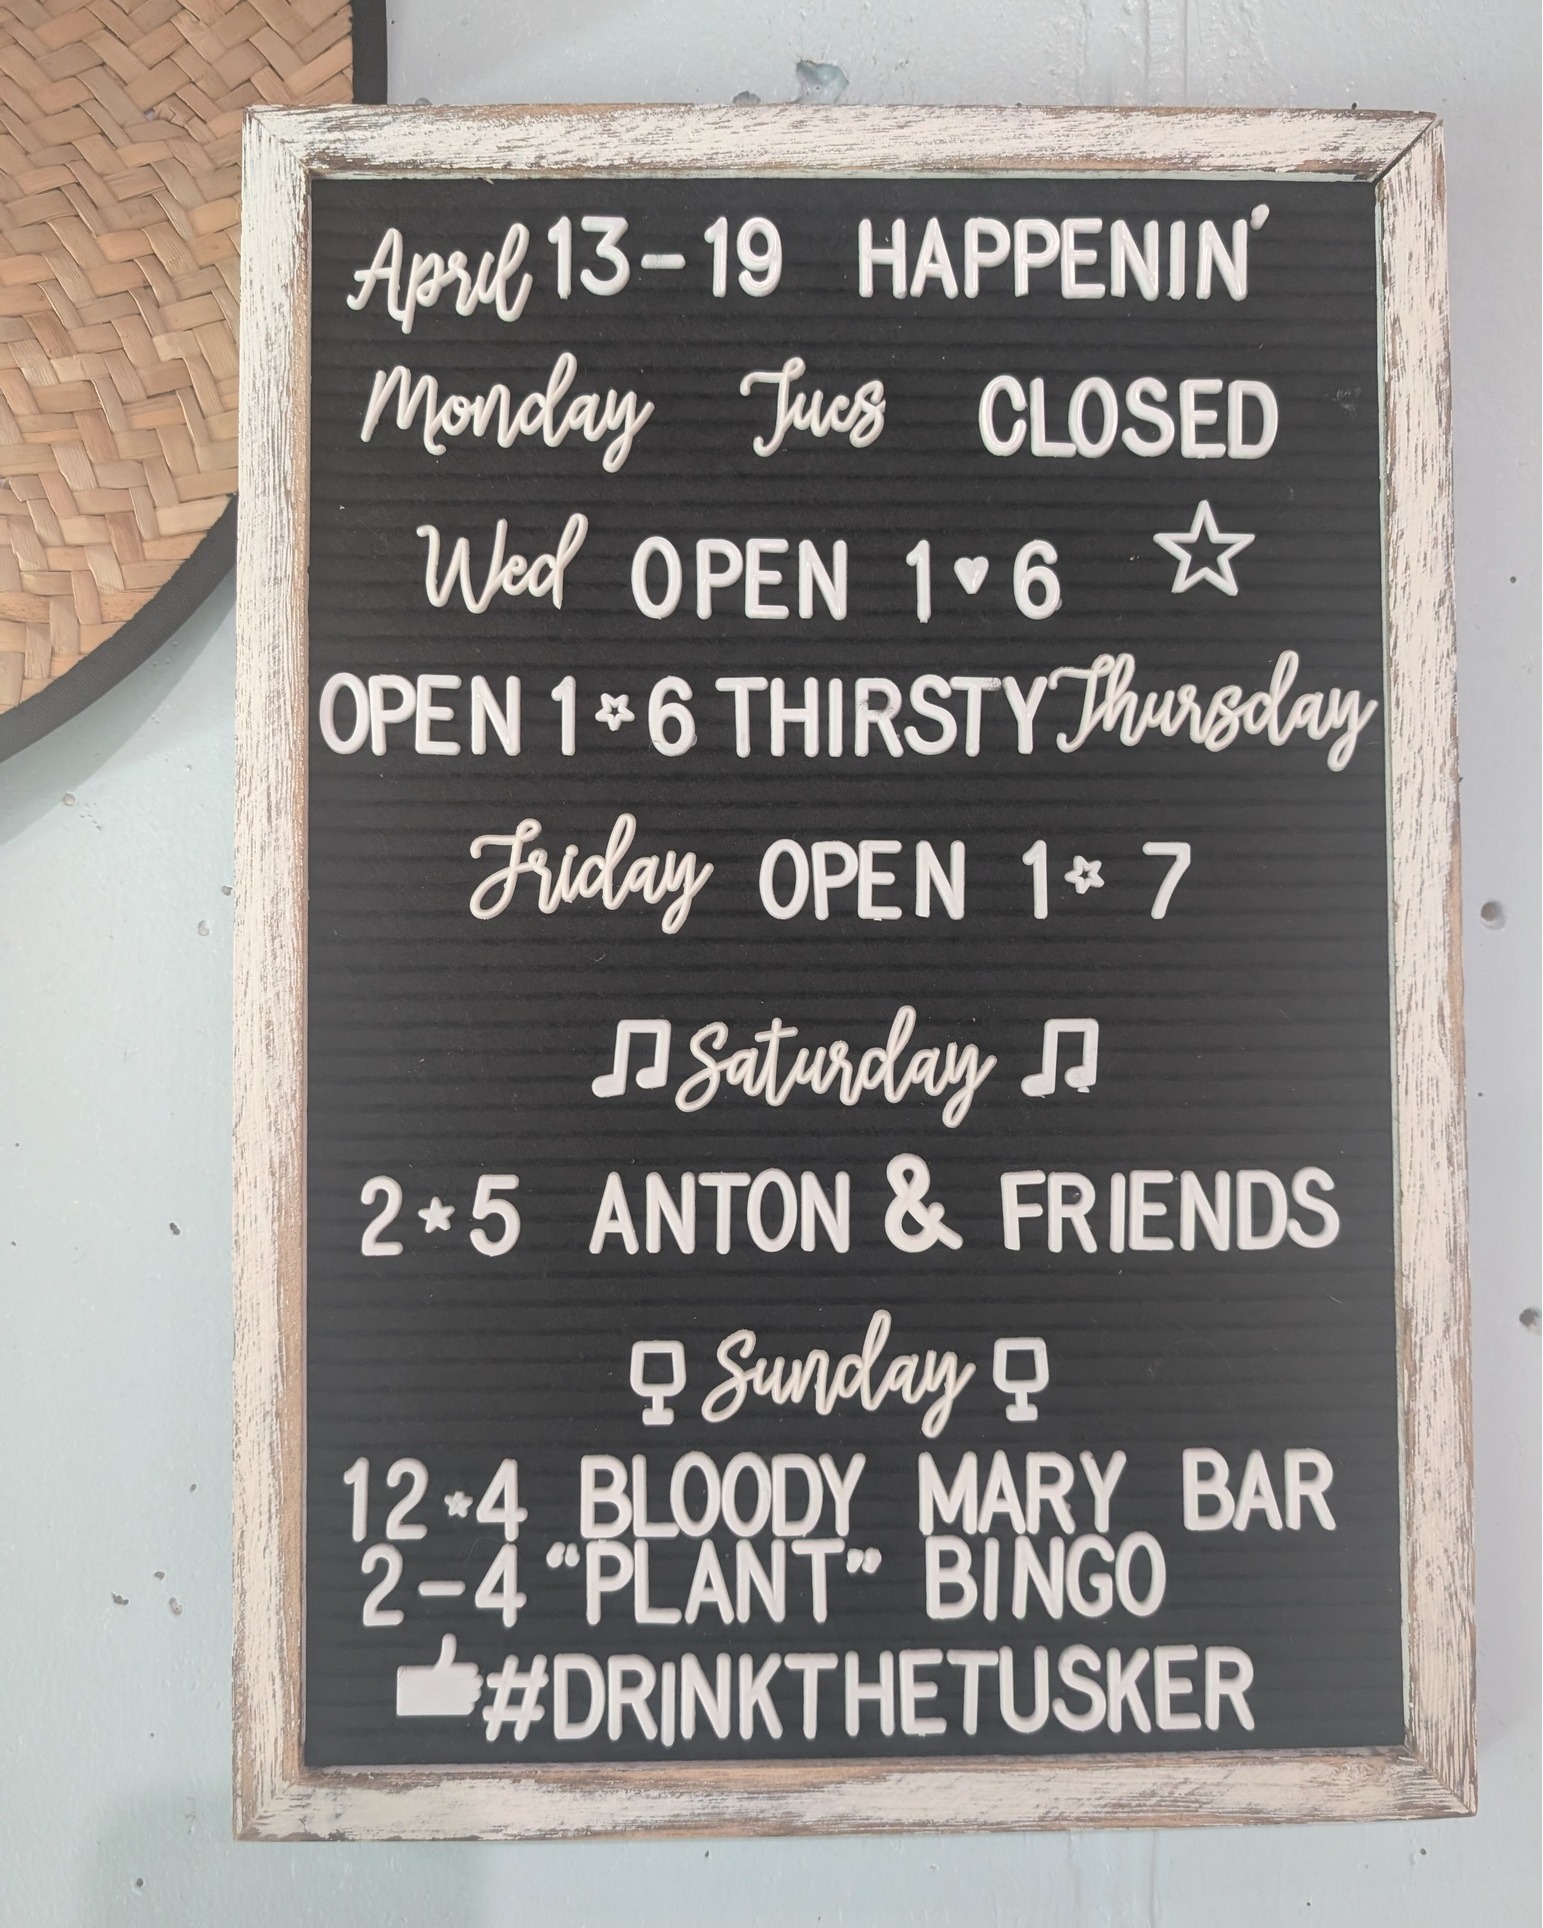 April 13-19 HAPPENIN'
Monday Tues CLOSED
Wed OPEN 1♥6 ☆
OPEN 1☆6 THIRSTY Thursday
Friday OPEN 1☆7
♫ Saturday ♫
2★5 ANTON & FRIENDS
Sunday
12★4 BLOODY MARY BAR
2-4 "PLANT" BINGO
👍#DRINKTHETUSKER